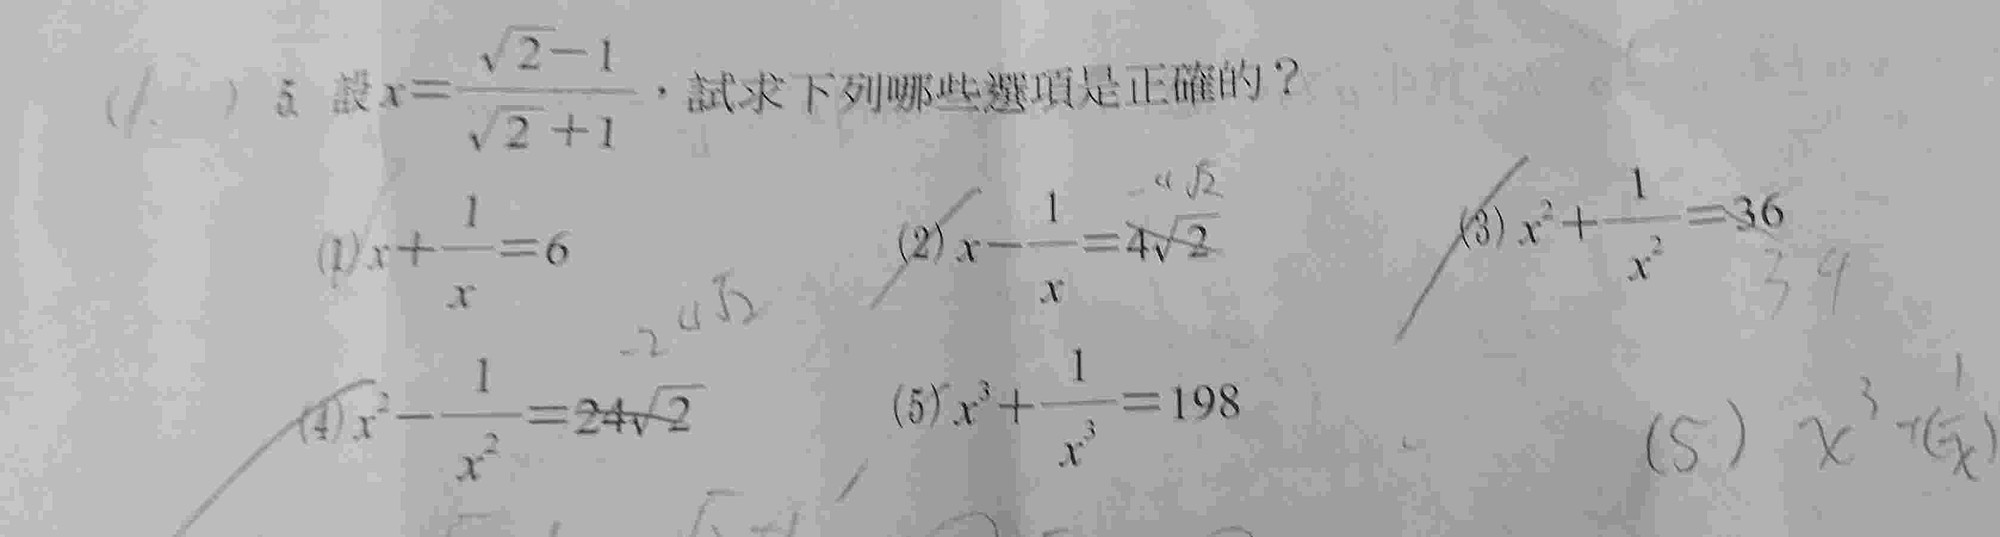 ( 1. ) 5. 設 x = (√2 − 1)/(√2 + 1)，試求下列哪些選項是正確的？
-4√2
(1) x + 1/x = 6 (2) x − 1/x = 4√2 (3) x² + 1/x² = 36
34
-24√2
(4) x² − 1/x² = 24√2 (5) x³ + 1/x³ = 198
(5) x³ + (1/x)